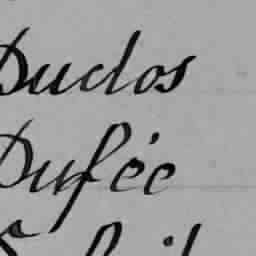 Duclos
Dufée